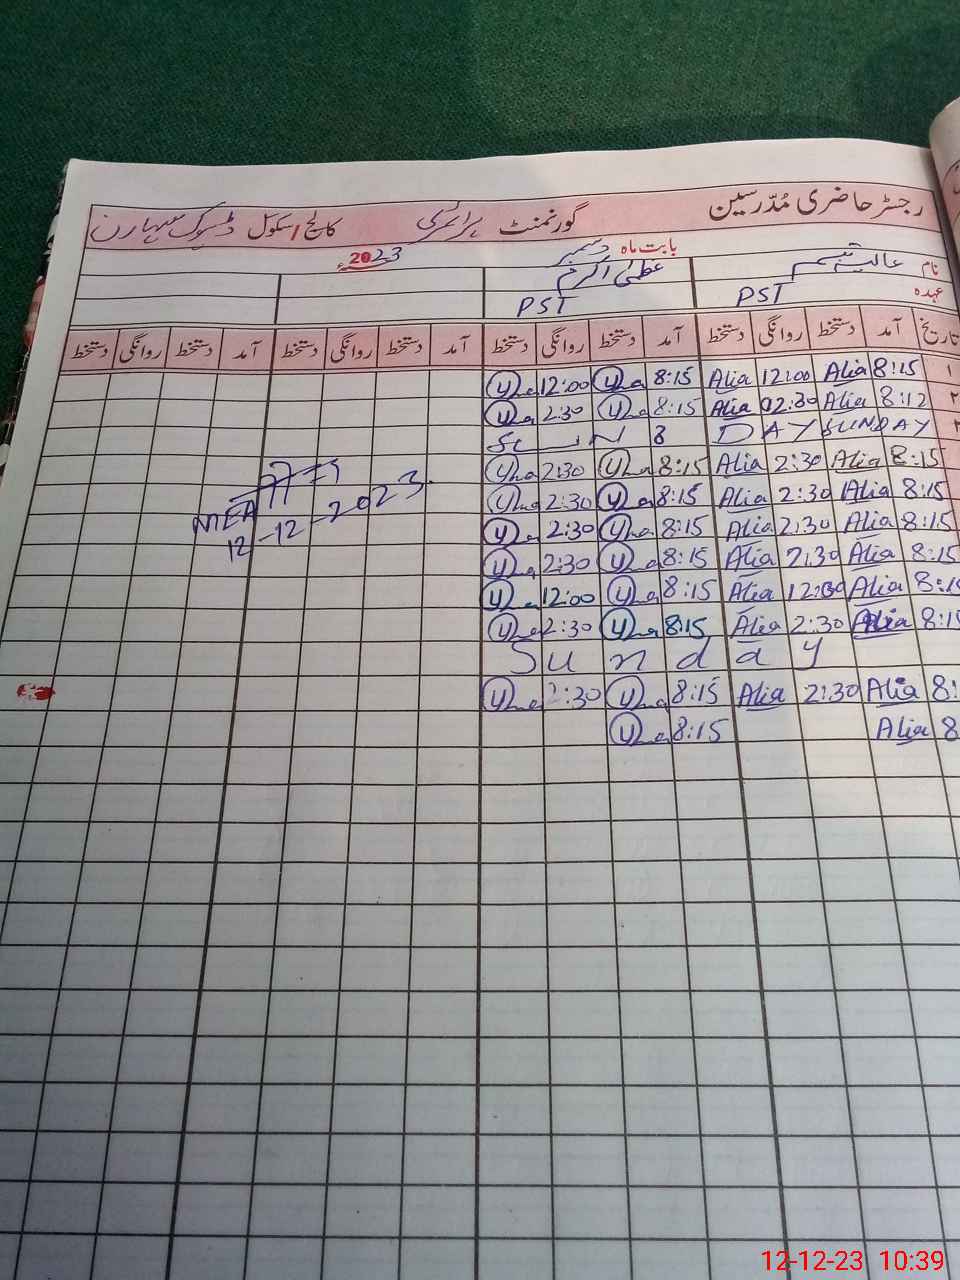 رجسٹر حاضری مُدّرسین گورنمنٹ پرائمری کالج / سکول
بابت ماہ دسمبر 2023ء
نام عالیہ تبسم عظمیٰ اکرم
عہدہ PST PST
تاریخ آمد دستخط روانگی دستخط آمد دستخط روانگی دستخط آمد دستخط روانگی دستخط آمد دستخط روانگی دستخط
۱ 8:15 Alia 12:00 Alia 8:15 12:00
۲ 8:12 Alia 02:30 Alia 8:15 2:30
۳ SUNDAY DAY SUN
8:15 Alia 2:30 Alia 8:15 2:30
8:15 Alia 2:30 Alia 8:15 2:30
8:15 Alia 2:30 Alia 8:15 2:30
8:15 Alia 2:30 Alia 8:15 2:30
8:15 Alia 12:00 Alia 8:15 12:00
8:15 Alia 2:30 Alia 8:15 2:30
Sunday
8: Alia 2:30 Alia 8:15 2:30
8 Alia 8:15
MEA
12-12-2023
12-12-23 10:39